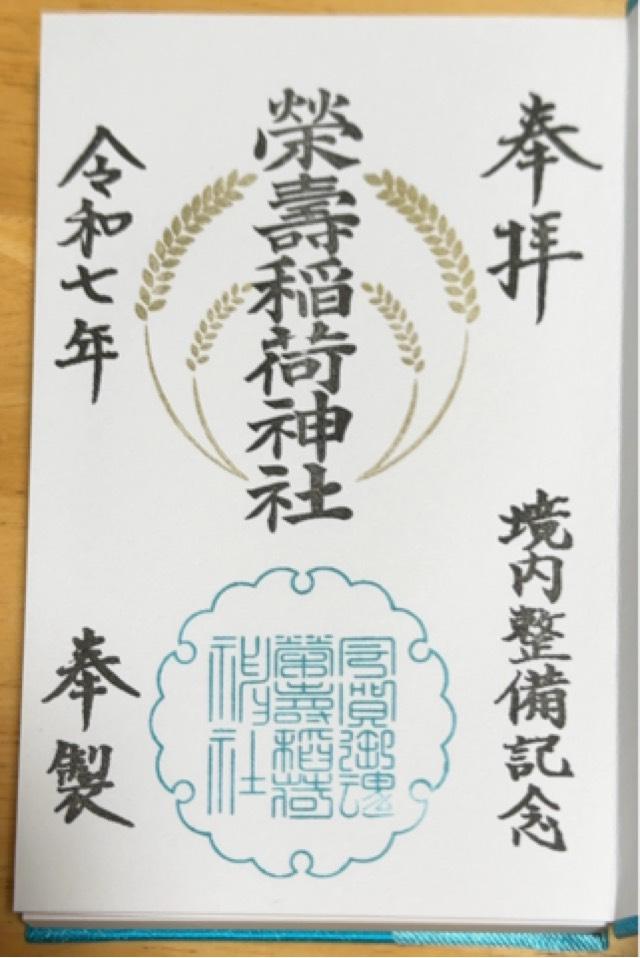 奉拝
境内整備記念
榮壽稲荷神社
令和七年
奉製
榮壽稻荷
神社